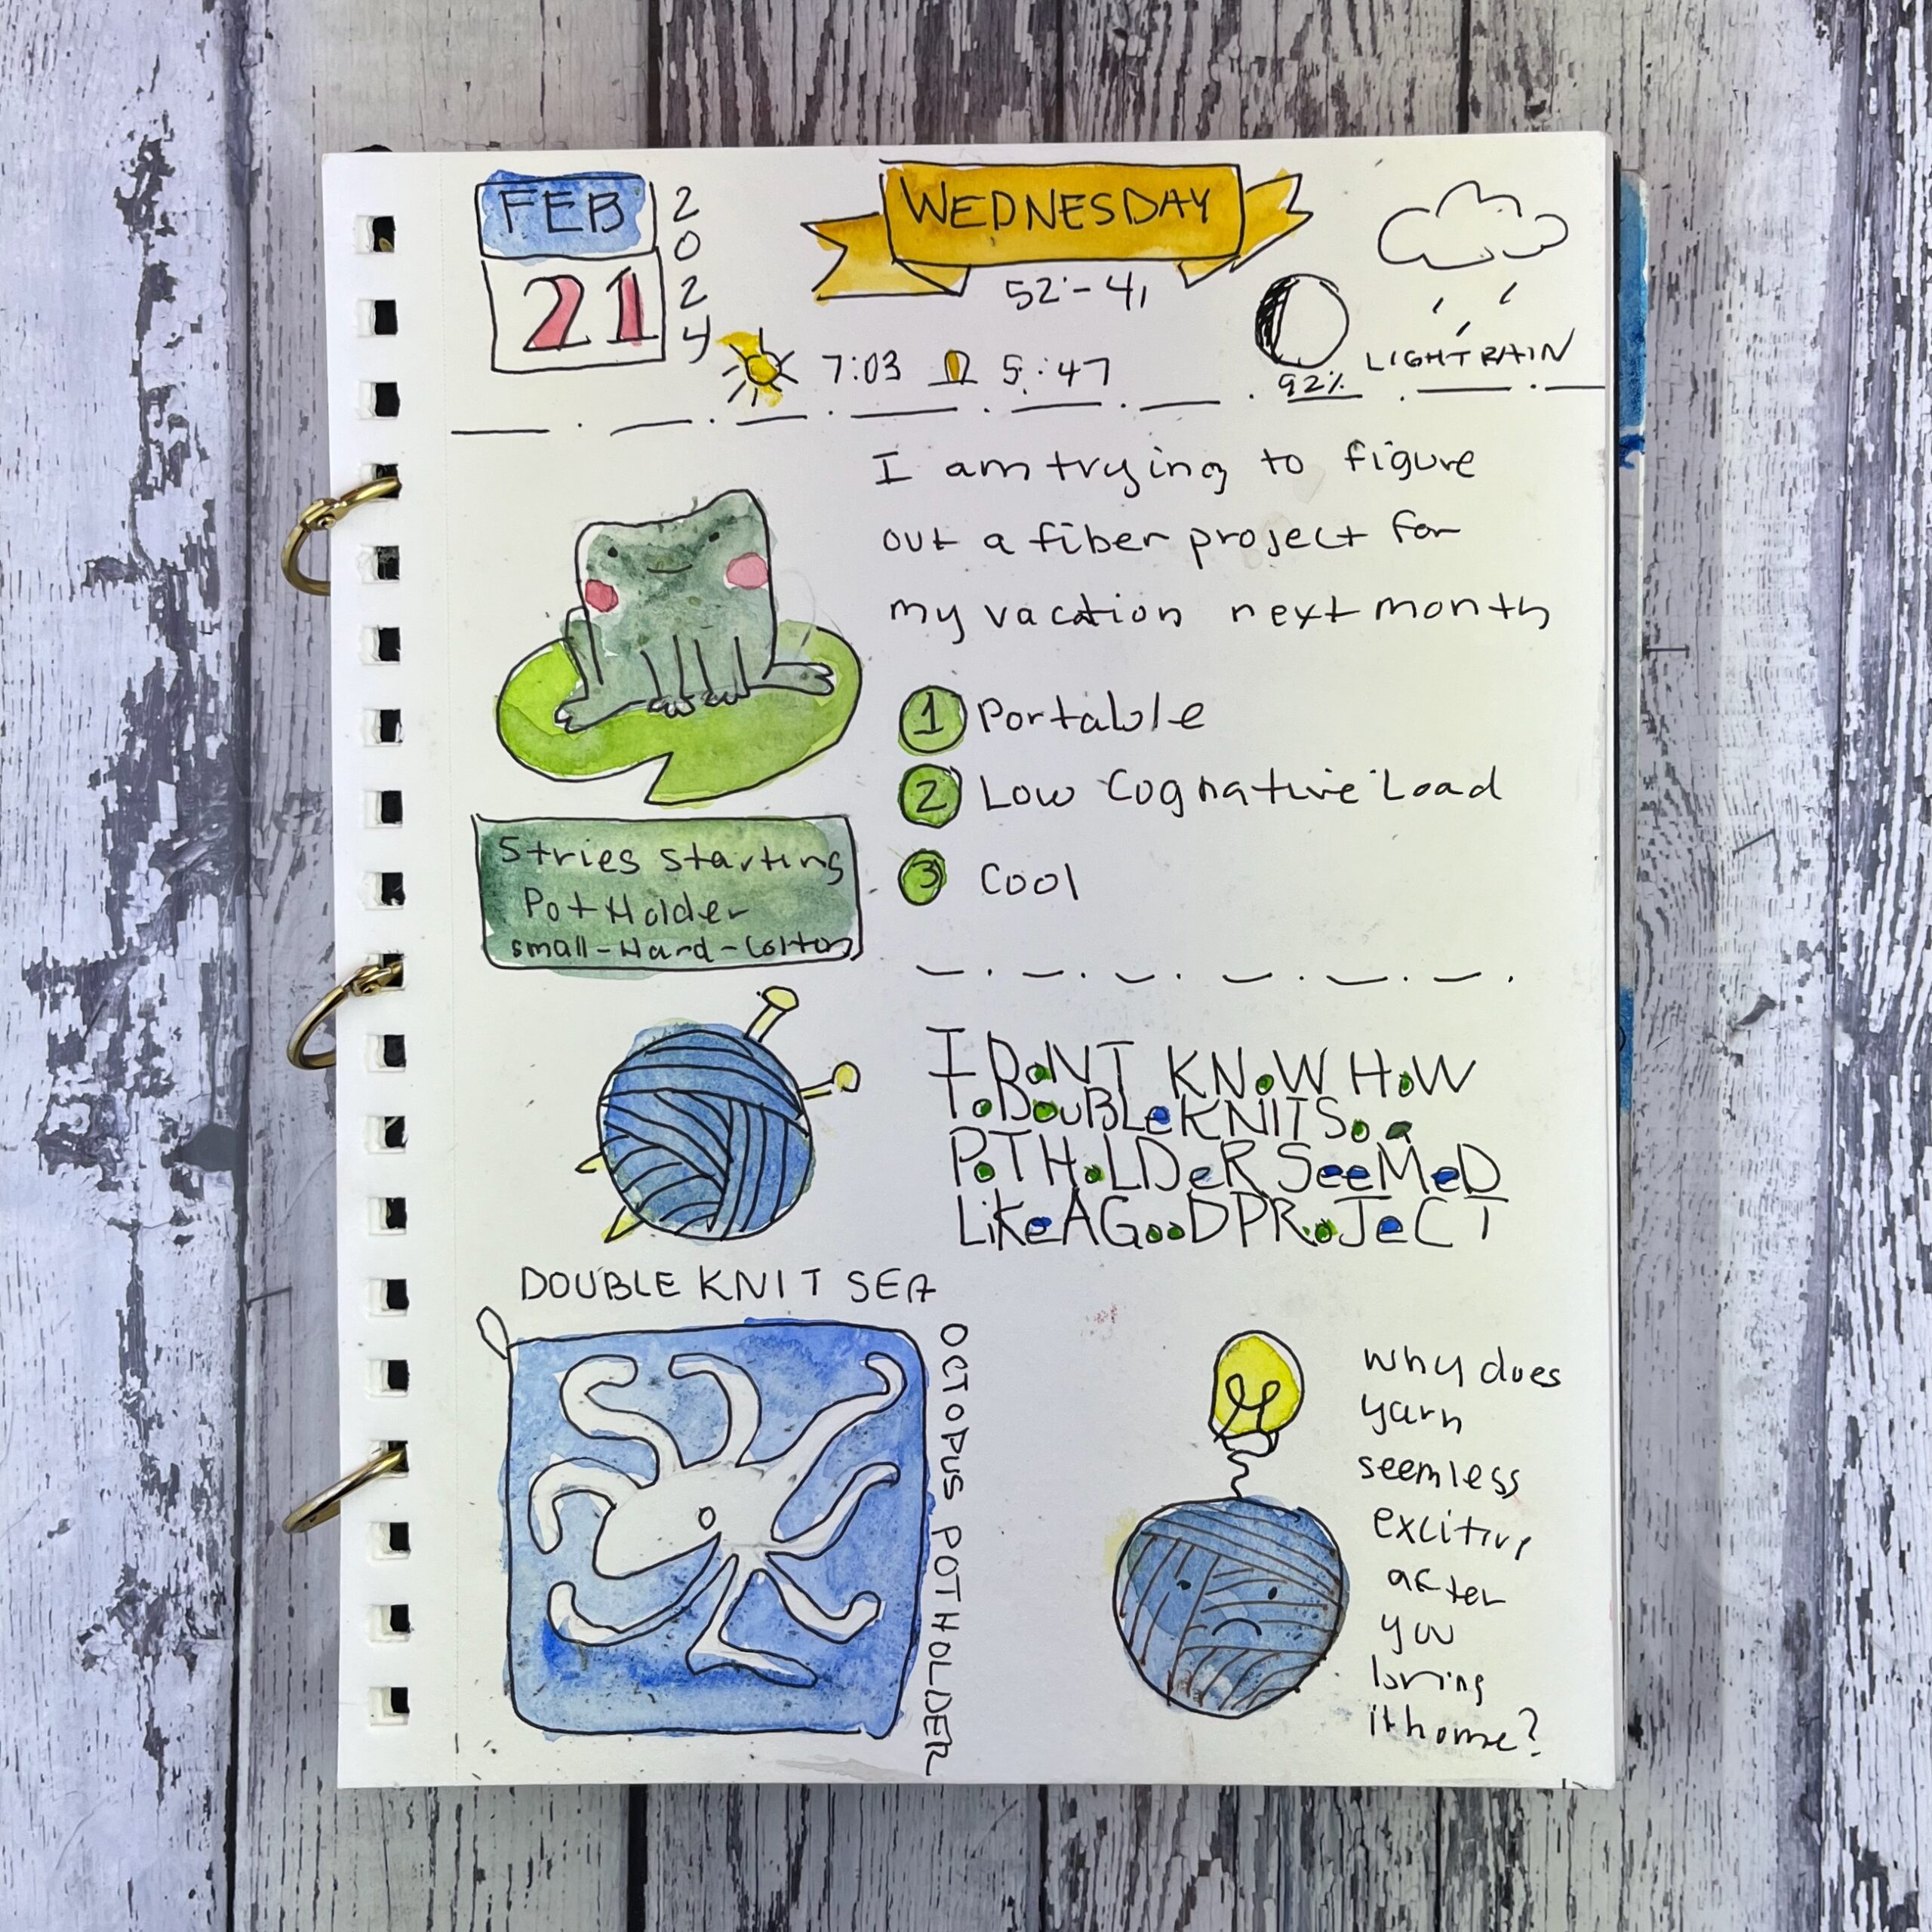 FEB
21
2024
WEDNESDAY
52-41
7:03 5:47
92%
LIGHT RAIN
I am trying to figure
out a fiber project for
my vacation next month
1 Portable
2 Low Cognative Load
3 Cool
Stries starting
Pot Holder
small-Hard-Cotton
I DoNT KNoW HoW
To DouBLe KNIT So a
PoTHoLDeR SeeMeD
LiKe A GooD PRoJeCT
DOUBLE KNIT SEA
OCTOPUS POT HOLDER
why does
yarn
seem less
exciting
after
you
bring
it home?